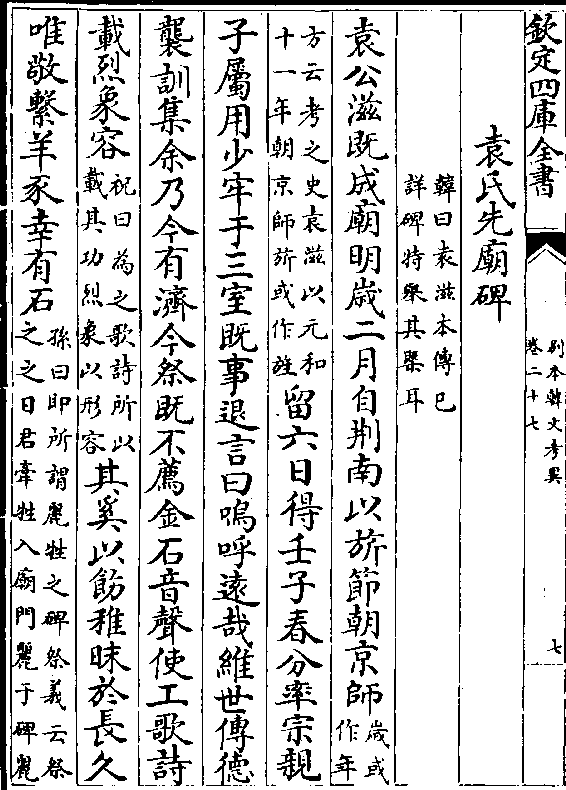 欽定四庫全書
別本韓文考異
卷二十七
七
袁氏先廟碑
韓曰袁滋本傳已
詳碑特舉其槩耳
袁公滋既成廟明歲二月自荆南以旂節朝京師
歲或
作年
方云考之史袁滋以元和
十一年朝京師旂或作旌
留六日得壬子春分率宗親
子屬用少牢于三室既事退言曰嗚呼遠哉維世傳德
襲訓集余乃今有濟今祭既不薦金石音聲使工歌詩
載烈象容
祝曰為之歌詩所以
載其功烈象以形容
其奚以飭稚昧於長久
唯敬繫羊豕幸有石
孫曰即所謂麗牲之碑祭義云祭
之之日君牽牲入廟門麗于碑麗